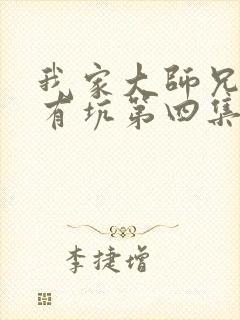 我家大師兄
有坑第四集
李捷增